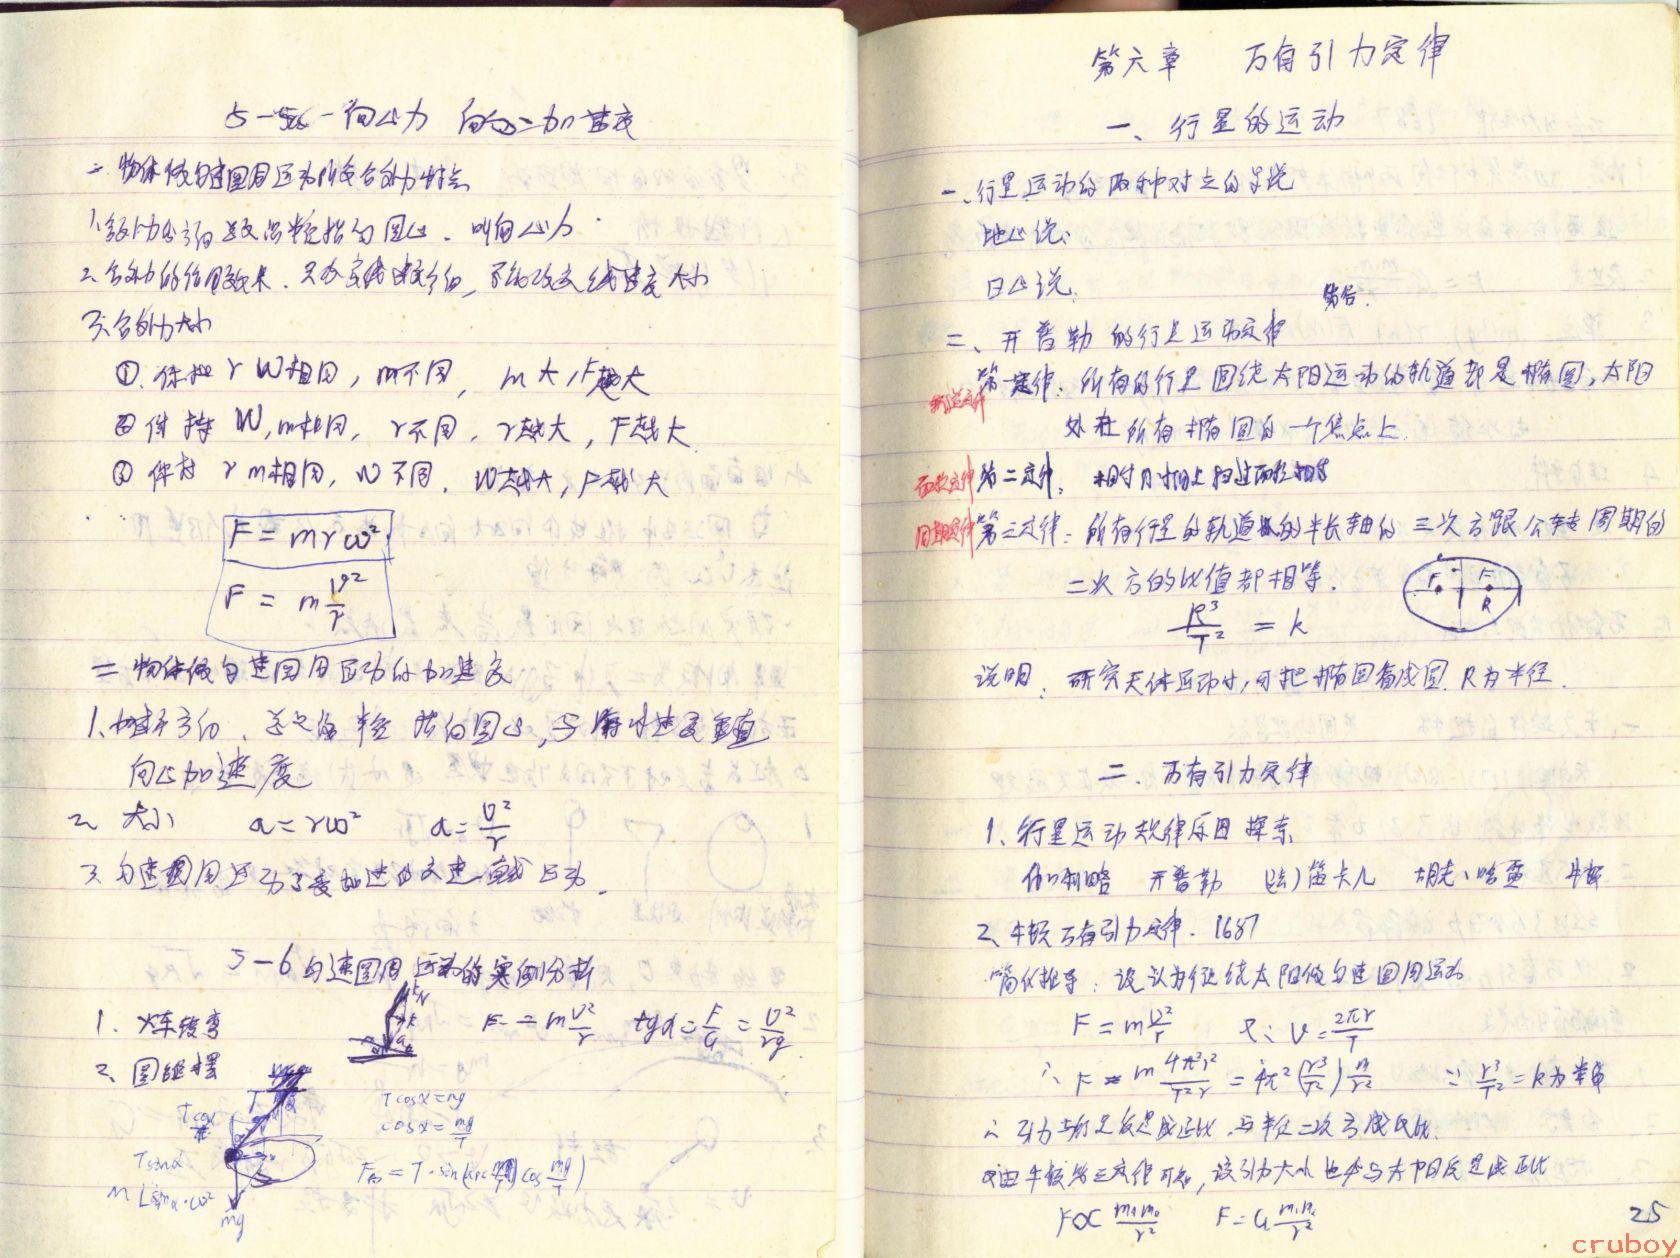 5-5 向心力 向心加速度
一. 物体做匀速圆周运动所受合外力特点
1. 合外力方向 沿半径指向圆心、叫向心力
2. 合外力的作用效果. 只改变线速度方向, 不能改变线速度大小
3. 合外力大小
①. 保持 r W相同, m不同, m大, F越大
② 保持 W, m相同, r不同, r越大, F越大
③ 保持 r m相同, W不同, W越大, F越大
F = mrω²
F = m v²/r
二 物体做匀速圆周运动的加速度
1. 方向. 总是沿半径 指向圆心, 与线速度垂直
向心加速度
2. 大小 a=rω² a=v²/r
3. 匀速圆周运动 变加速 运动.
5-6 匀速圆周运动的实例分析
1. 火车转弯 F = m v²/r tgα = F/G = v²/rg
2. 圆锥摆
T
Tcosα Tcosα=mg
cosα = mg/T
Tsinα F向 = T·sin(arc cos mg/T)
mLsinα·ω²
mg
第六章 万有引力定律
一、行星的运动
一、行星运动的两种对立的学说
地心说:
日心说:
二、开普勒的行星运动定律
第一定律: 所有的行星围绕太阳运动的轨道都是椭圆, 太阳
处在所有椭圆的一个焦点上.
面积定律 第二定律: 相时间上扫过面积相等
周期定律 第三定律: 所有行星的轨道的半长轴的三次方跟公转周期的
二次方的比值都相等.
F F
R
R³/T² = k
说明: 研究天体运动时, 可把椭圆看成圆. R为半径.
二. 万有引力定律
1. 行星运动规律原因探索
伽利略 开普勒 (法)笛卡儿 胡克、哈雷 牛顿
2. 牛顿万有引力定律. 1687
简化推导: 设认为行星绕太阳做匀速圆周运动
F = m v²/r 又∵ v = 2πr/T
∴ F = m 4π²r²/T²r = 4π²(r³/T²) m/r² ∵ r³/T² = k为常数
∴ 引力与行星质量成正比, 与半径二次方成反比.
又由牛顿第三定律可知, 该引力大小也与太阳质量成正比
F∝ m₁m₂/r² F=G m₁m₂/r²
25
cruboy